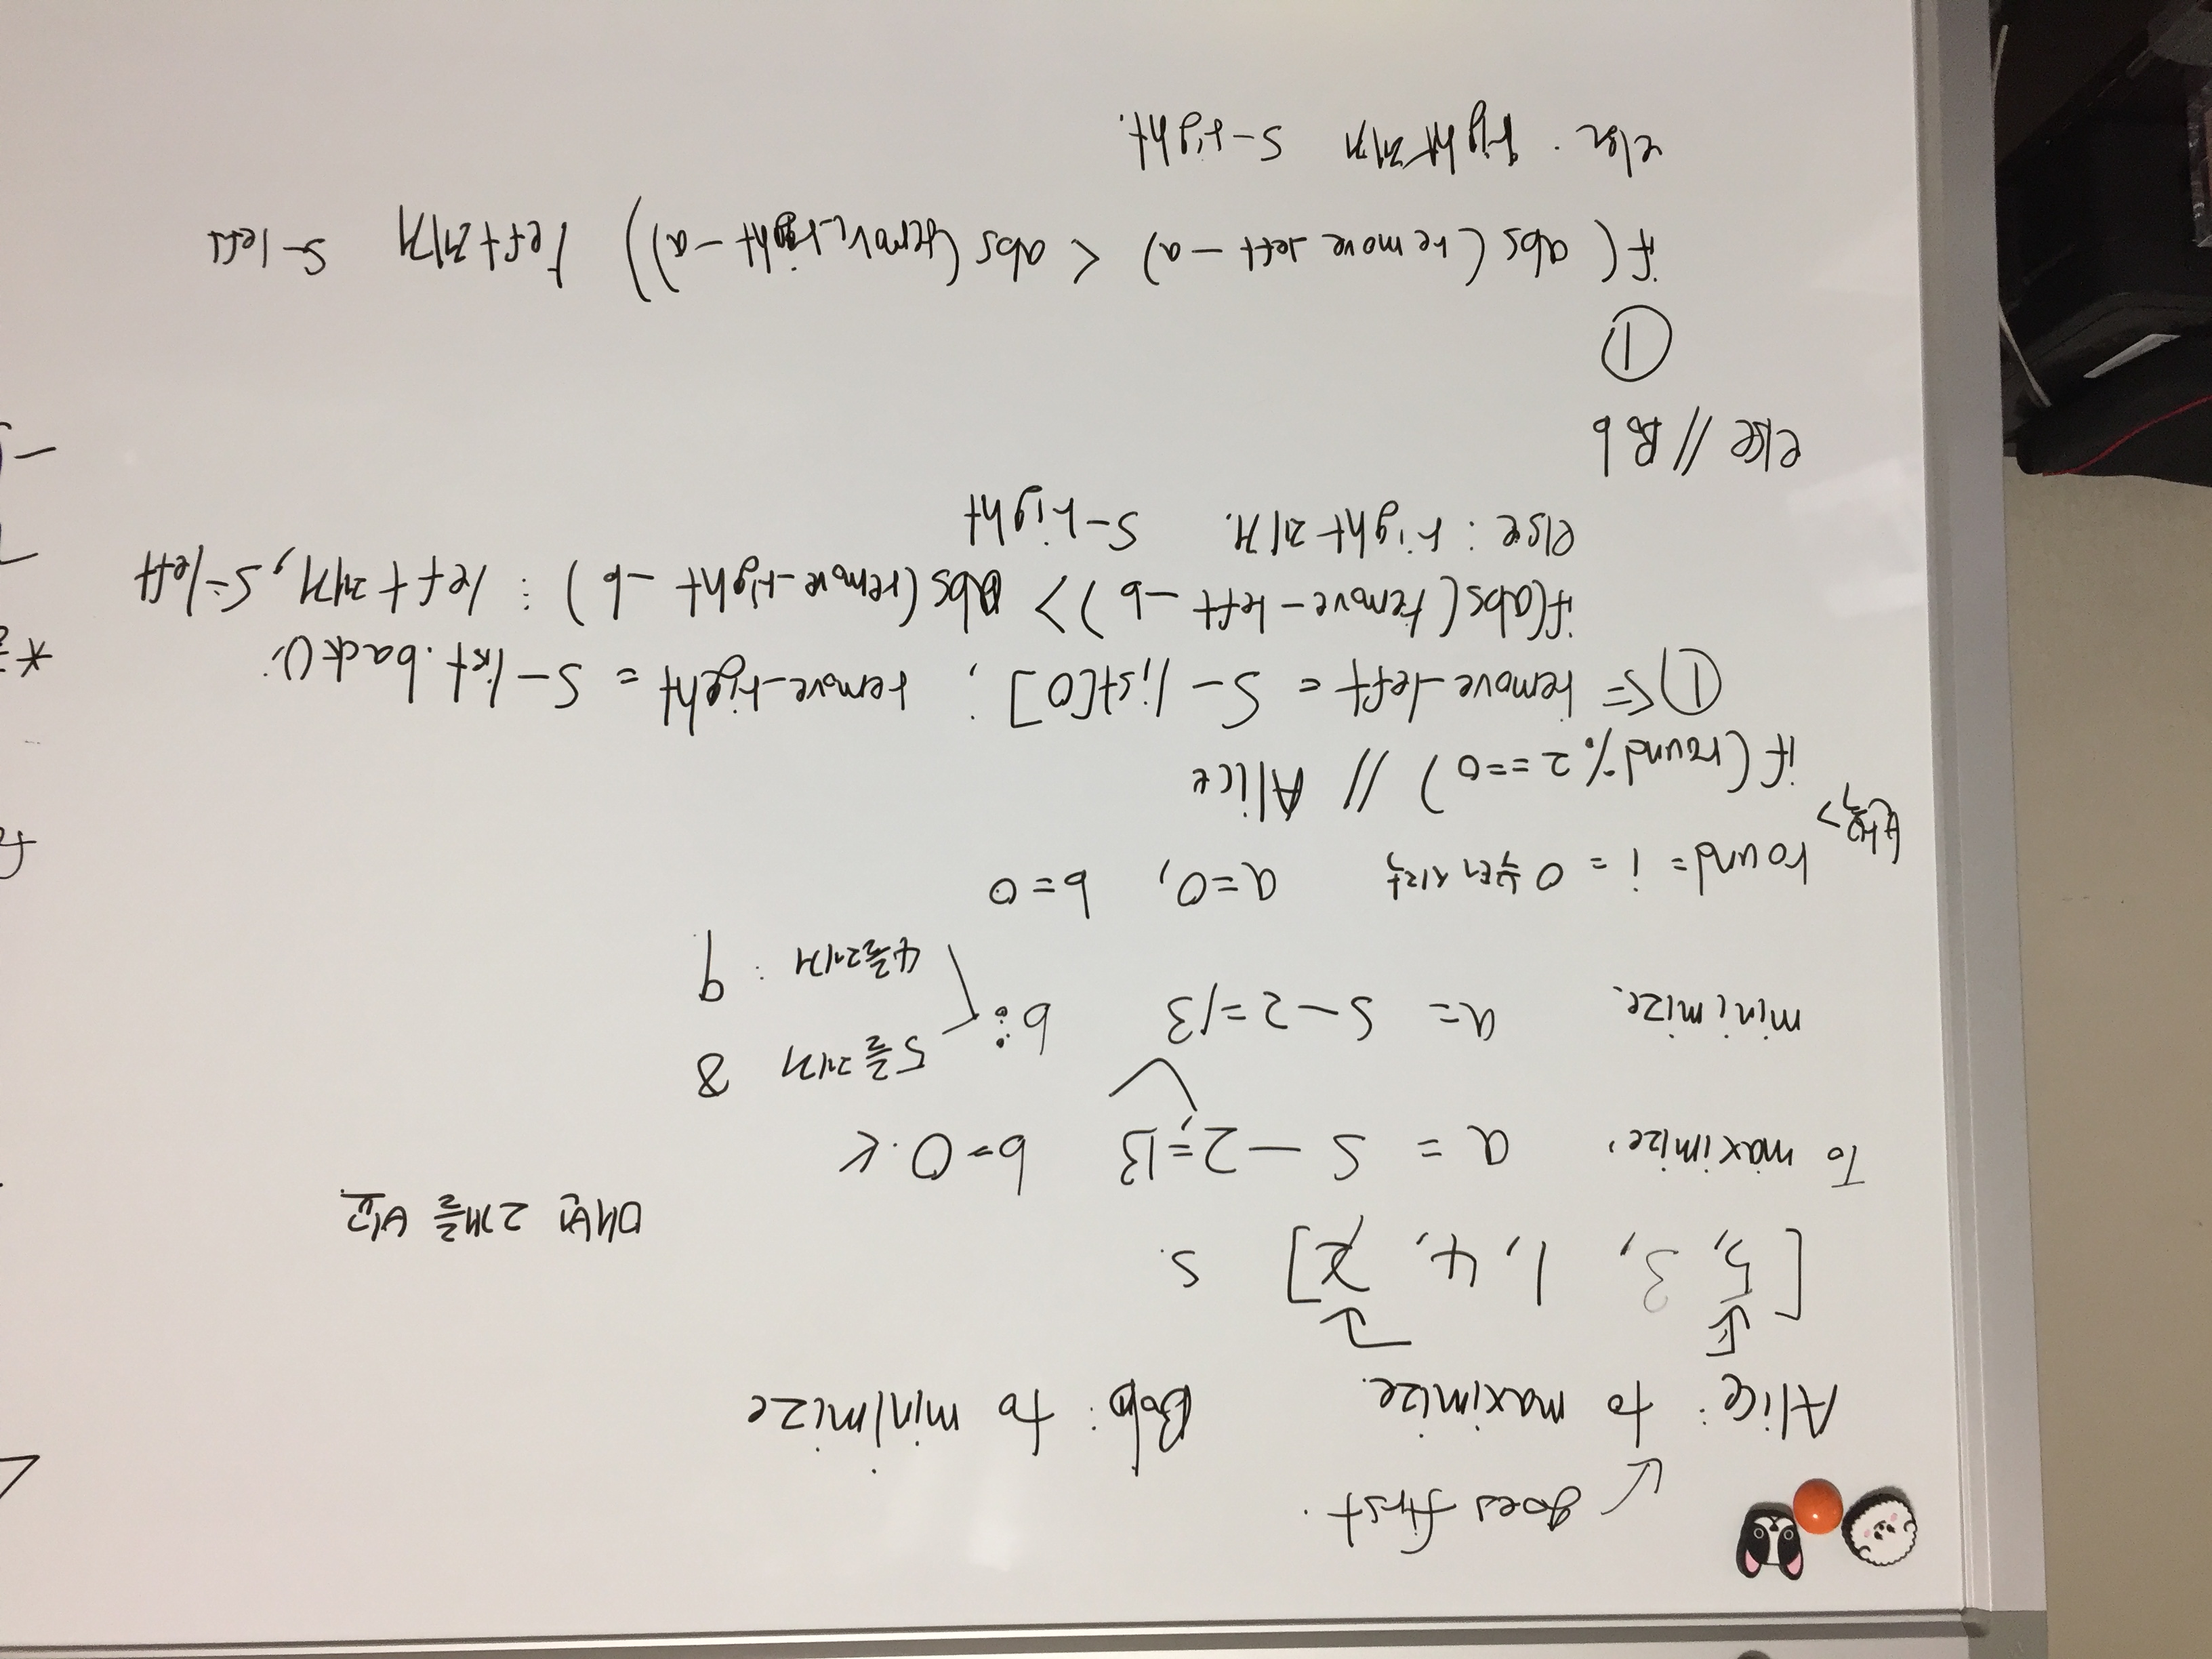 goes first.
Alice: to maximize. Bob: to minimize
[5, 3, 1, 4, 2] S.
매번 2개를 비교
To maximize, a = S - 2 = 13 b = 0.
minimize. a = S - 2 = 13 b:
5를 제거 8
4를 제거 : 9
round = i = 0 부터 시작 a=0, b=0
반복>
if(round % 2 ==0) // Alice
① <= remove_left = S - list[0]; remove_right = S - list.back();
if(abs(remove-left -b) > abs(remove-right -b) : left 제거, S-=left
else : right 제거. S-right
else // Bob
①
if( abs(remove_left - a) < abs(remove_right - a)) left 제거 S-left
else. right 제거 S-right.